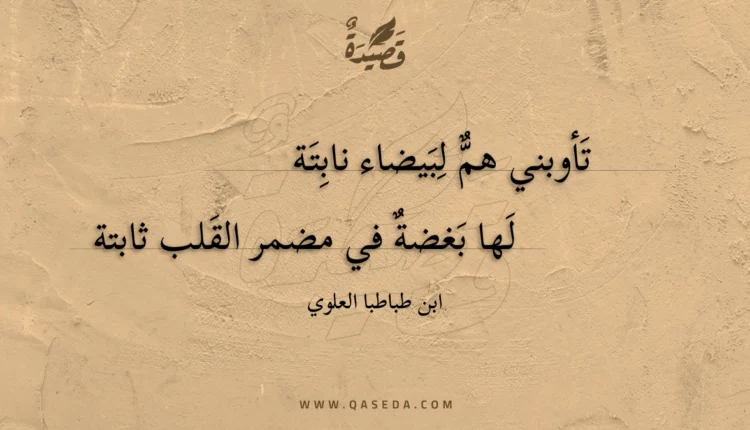 قَصِيدَةٌ
تَأوبني همٌّ لِبَيضاء نابِتَة
لَها بَغضةٌ في مضمر القَلب ثابتة
ابن طباطبا العلوي
WWW.QASEDA.COM